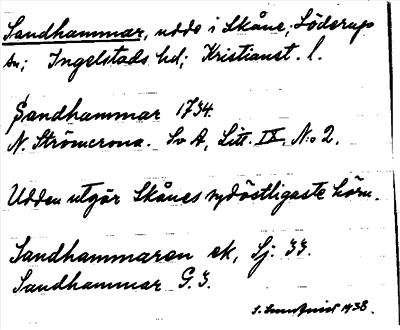 Sandhammar, udde i Skåne; Löderup
sn; Ingelstads hd; Kristianst. l.
Sandhammar 1734.
N. Strömcrona. Sv A, Litt. IX, N:o 2.
Udden utgör Skånes sydöstligaste hörn.
Sandhammaren ek, Sj: 33.
Sandhammar G.3.
1938.